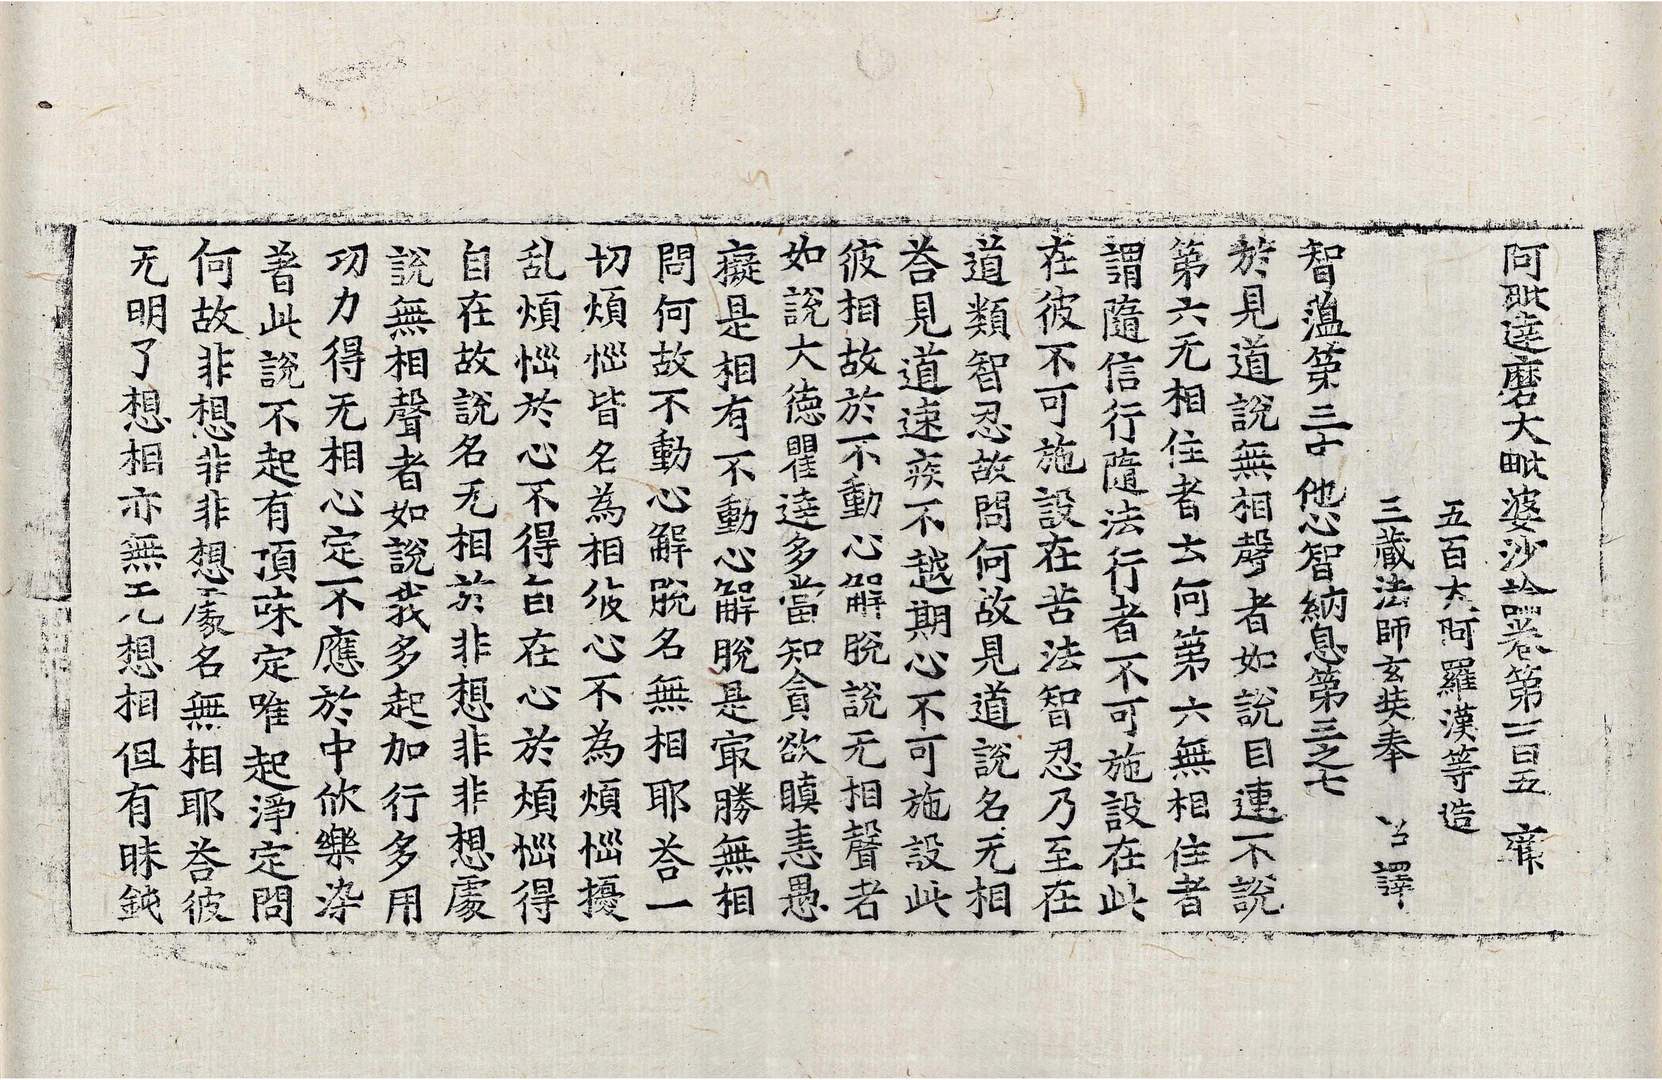 阿毗達磨大毗婆沙論卷第一百五
五百大阿羅漢等造
三藏法師玄奘奉 詔譯
智蘊第三中他心智納息第三之七
於見道說無相聲者如說目連不說
第六无相住者云何第六無相住者
謂隨信行隨法行者不可施設在此
在彼不可施設在苦法智忍乃至在
道類智忍故問何故見道說名无相
荅見道速疾不越期心不可施設此
彼相故於不動心解脫說无相聲者
如說大德瞿達多當知貪欲瞋恚愚
癡是相有不動心解脫是㝡勝無相
問何故不動心解脫名無相耶荅一
切煩惱皆名為相彼心不為煩惱擾
乱煩惱於心不得自在心於煩惱得
自在故說名无相於非想非非想處
說無相聲者如說我多起加行多用
功力得无相心定不應於中欣樂染
著此說不起有頂味定唯起淨定問
何故非想非非想處名無相耶荅彼
无明了想相亦無无想相但有昧鈍